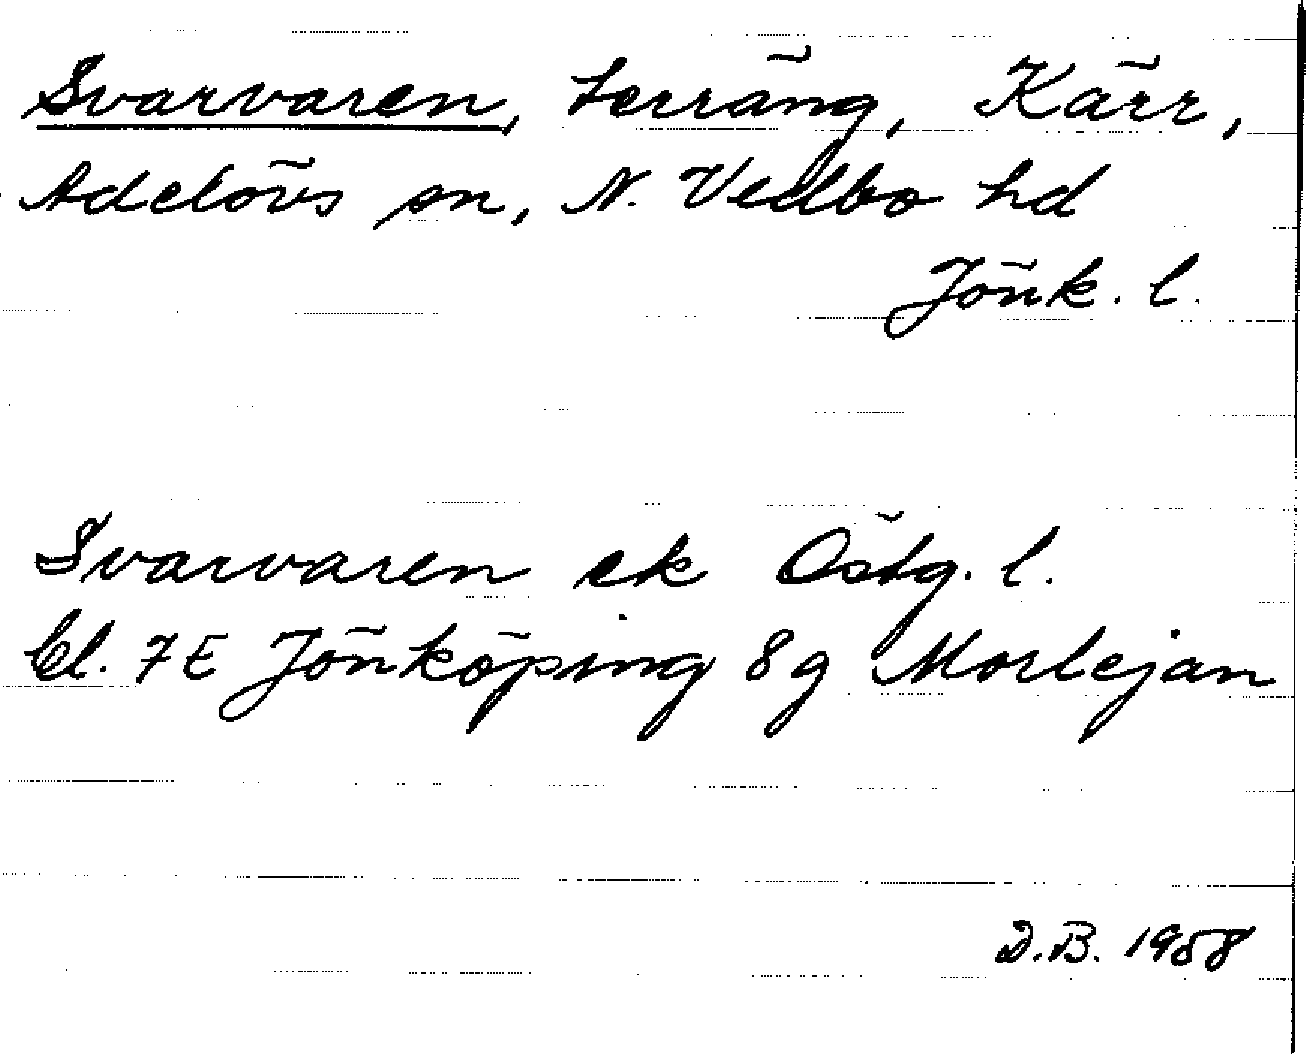 Svarvaren, terräng, Kärr,
Adelövs sn, N. Vedbo hd
Jönk. l.
Svarvaren ek Östg. l.
bl. 7E Jönköping 8g Morlejan
D.B. 1958